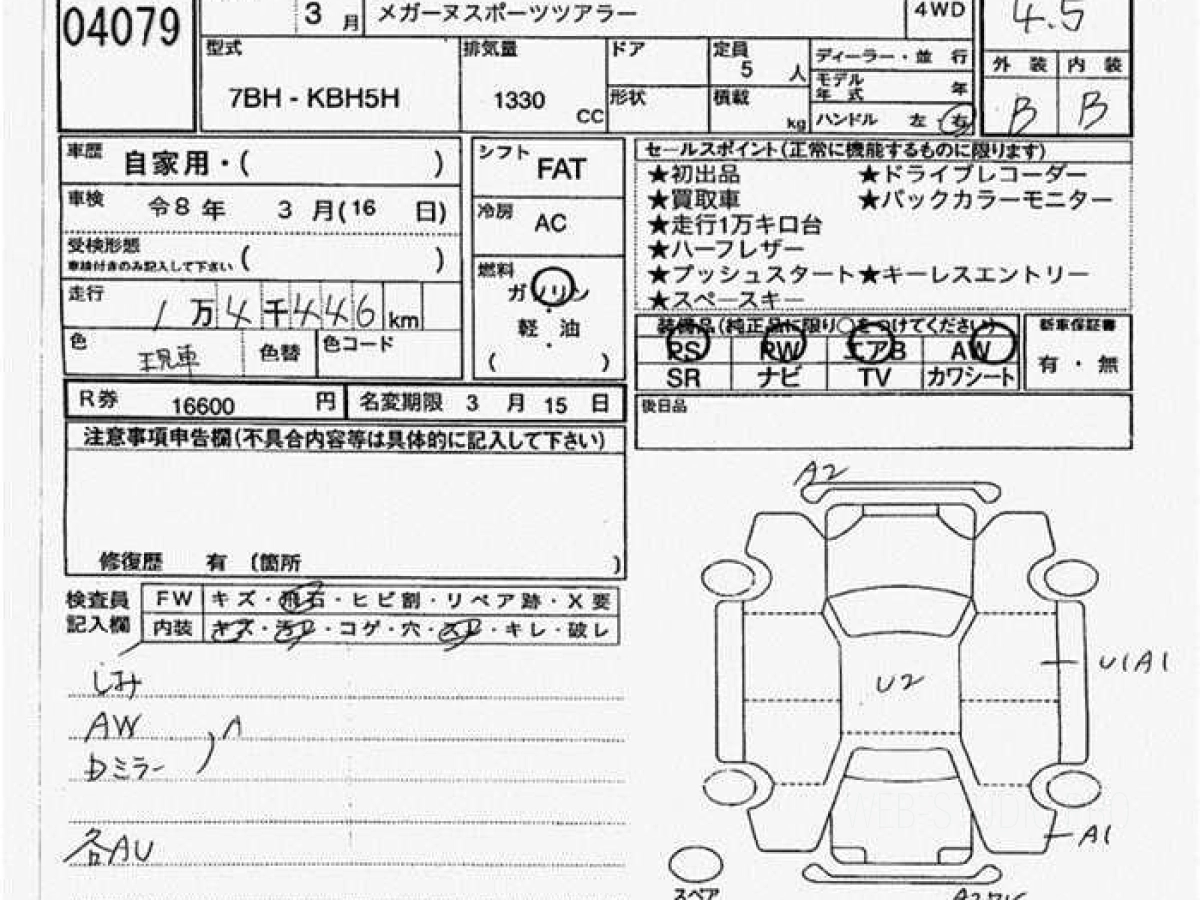 04079
3 月 メガーヌスポーツツアラー 4WD 4.5
型式 7BH - KBH5H
排気量 1330 CC
ドア
形状
定員 5 人
積載 kg
ディーラー・並 行
モデル年式 年
ハンドル 左 右
外 装 内 装
B B
車歴 自家用・( )
車検 令8年 3月(16 日)
受検形態 ( )
車検付きのみ記入して下さい
走行 1万4千446 km
色 現車 色替 色コード
シフト FAT
冷房 AC
燃料 ガソリン
・
軽・油
( )
セールスポイント(正常に機能するものに限ります)
★初出品 ★ドライブレコーダー
★買取車 ★バックカラーモニター
★走行1万キロ台
★ハーフレザー
★プッシュスタート★キーレスエントリー
★スペースキー
装備品(純正品に限り○をつけてください)
PS PW エアB AW
SR ナビ TV カワシート
新車保証書
有・無
R券 16600 円 名変期限 3 月 15 日
後日品
注意事項申告欄(不具合内容等は具体的に記入して下さい)
修復歴 有 〔箇所 )
検査員記入欄
FW キズ・飛石・ヒビ割・リペア跡・X要
内装 キズ・汚レ・コゲ・穴・スレ・キレ・破レ
しみ
AW
Dミラー
各AU
A2
U2
U1A1
A1
スペア
WEB-STUDIO.PRO